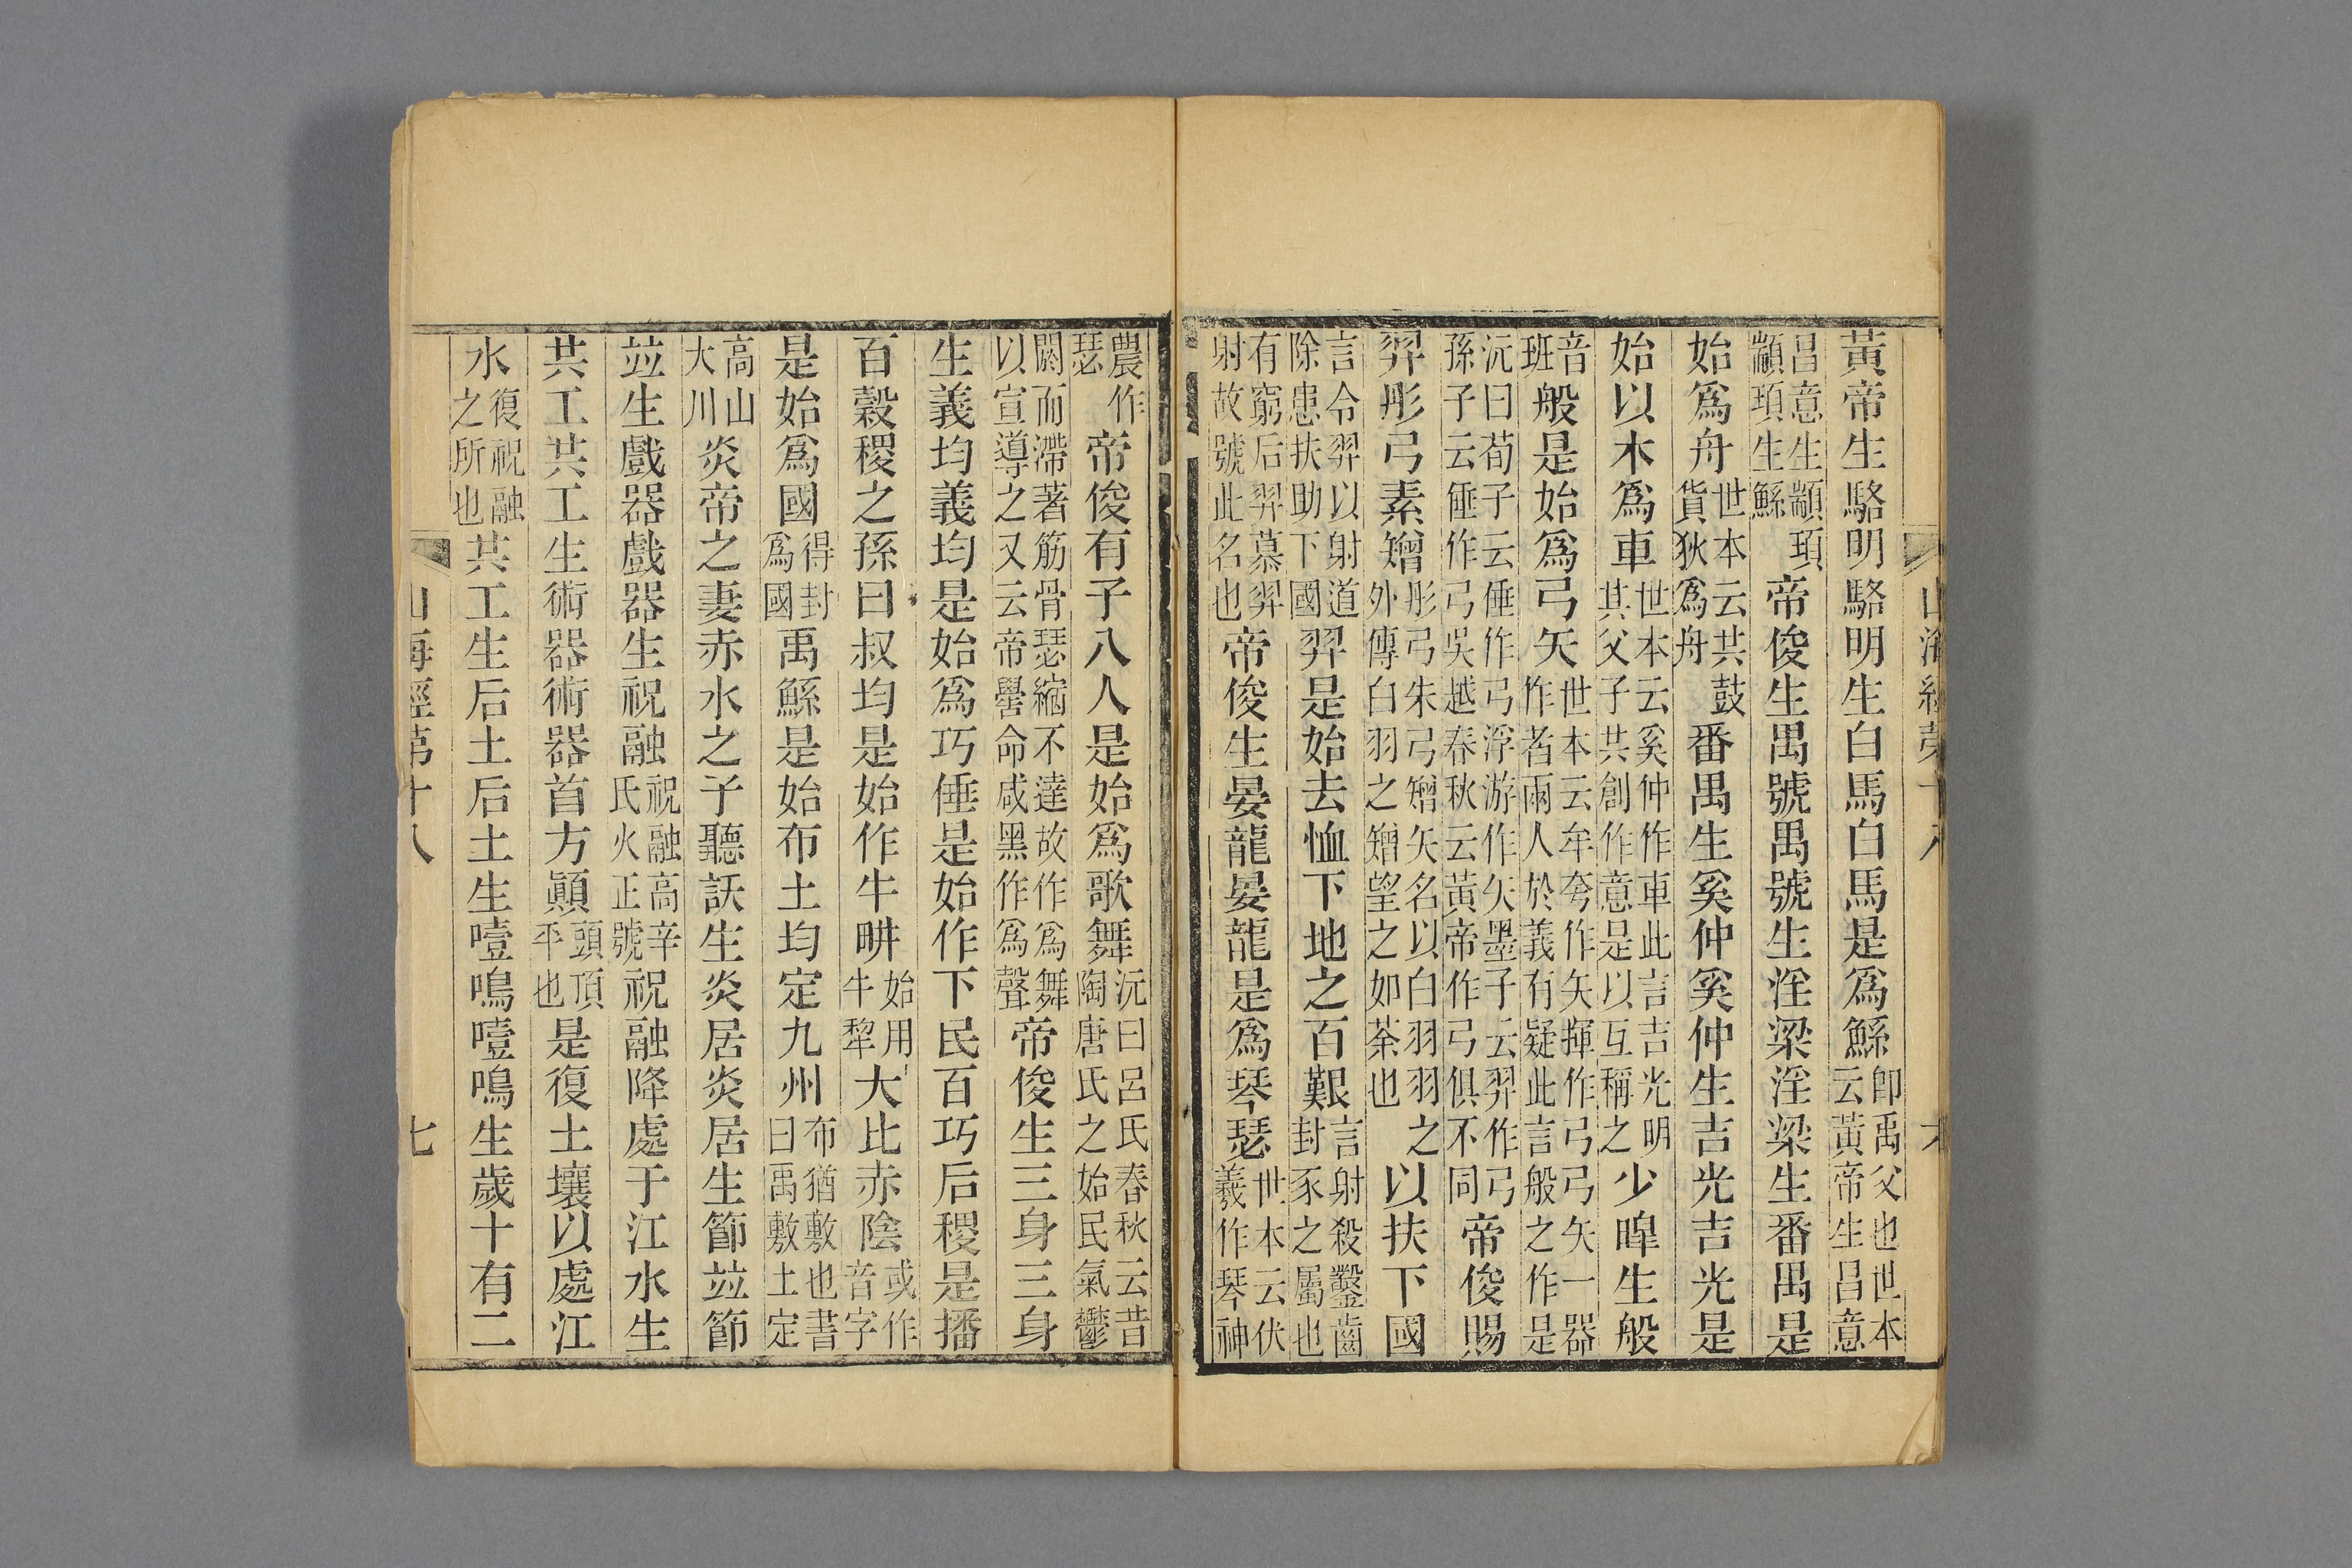 山海經第十八　六
黃帝生駱明駱明生白馬白馬是爲鯀卽禹父也世本云黃帝生昌意
昌意生顓頊顓頊生鯀帝俊生禺號禺號生淫梁淫梁生番禺是
始爲舟世本云共鼓貨狄爲舟番禺生奚仲奚仲生吉光吉光是
始以木爲車世本云奚仲作車此言吉光明其父子共創作意是以互稱之少暤生般
音班般是始爲弓矢世本云牟夸作矢揮作弓弓矢一器作者兩人於義有疑此言般之作是
沅曰荀子云倕作弓浮游作矢墨子云羿作弓孫子云倕作弓吳越春秋云黃帝作弓俱不同帝俊賜
羿彤弓素矰彤弓朱弓矰矢名以白羽羽之外傳白羽之矰望之如荼也以扶下國
言令羿以射道除患扶助下國羿是始去恤下地之百艱言射殺鑿齒封豕之屬也
有窮后羿慕羿射故號此名也帝俊生晏龍晏龍是爲琴瑟世本云伏羲作琴神
農作瑟帝俊有子八人是始爲歌舞沅曰呂氏春秋云昔陶唐氏之始民氣鬱
閼而滯著筋骨瑟縮不達故作爲舞以宣導之又云帝嚳命咸黑作爲聲帝俊生三身三身
生義均義均是始爲巧倕是始作下民百巧后稷是播
百穀稷之孫曰叔均是始作牛畊始用牛犂大比赤陰或作音字
是始爲國得封爲國禹鯀是始布土均定九州布猶敷也書曰禹敷土定
高山大川炎帝之妻赤水之子聽訞生炎居炎居生節竝節
竝生戲器戲器生祝融祝融高辛氏火正號祝融降處于江水生
共工共工生術器術器首方顚頭頂平也是復土壤以處江
水復祝融之所也共工生后土后土生噎鳴噎鳴生歲十有二
山海經第十八　七